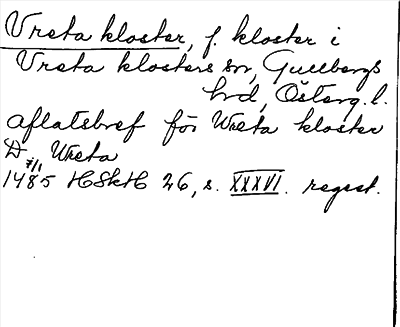 Vreta kloster, f. kloster i
Vreta klosters sn, Gullbergs
hrd, Österg. l.
aflatsbref för Wreta kloster
D Wreta
7/11
1485 HSkH 26, s. XXXVI. regest.